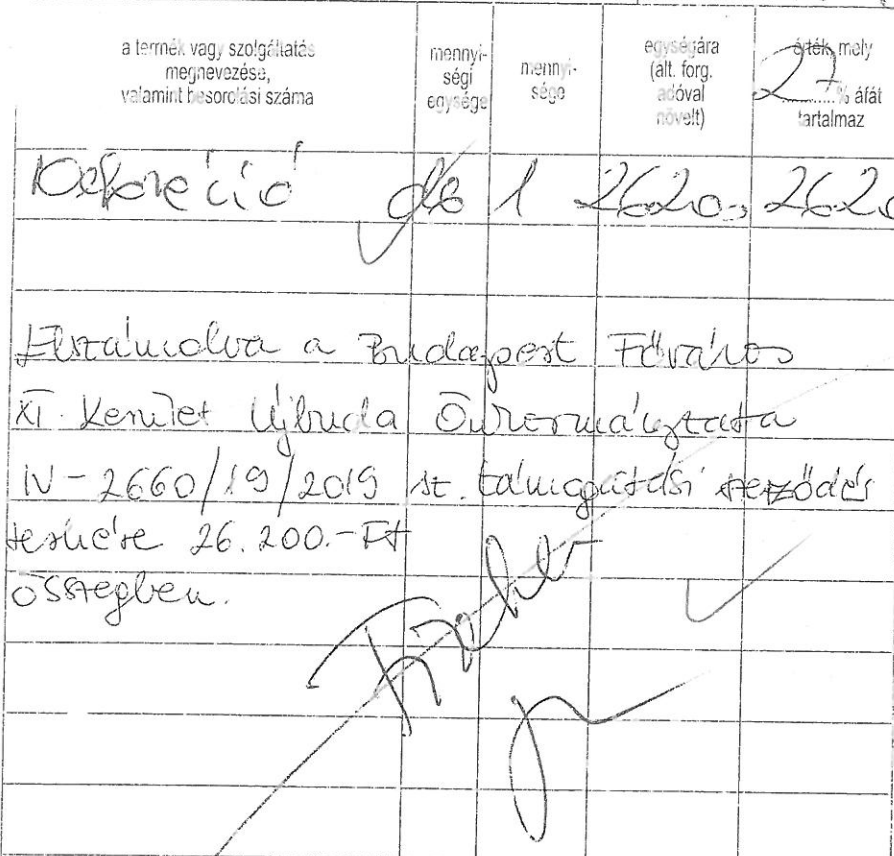 a termék vagy szolgáltatás
megnevezése,
valamint besorolási száma
mennyi-
ségi
egysége
mennyi-
sége
egységára
(alt. forg.
adóval
növelt)
érték, mely
27 % áfát
tartalmaz
Dekoráció db 1 26200.-
Elszámolva a Budapest Főváros
XI. Kerület Újbuda Önkormányzata
IV-2660/19/2019 sz. támogatási szerződés
terhére 26.200.-Ft
összegben.